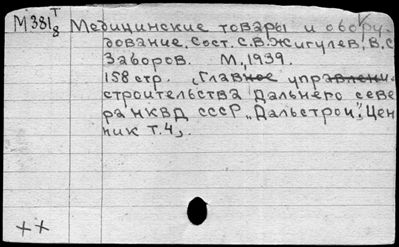 М381 т/8 Медицинские товары и обору-
дование, Сост. С.В.Жигулев, В.С.
Заборов. М., 1939.
158 стр. „Главное управлени-
строительства Дальнего севе
ра НКВД СССР „Дальстрой". Цен
ник Т.4„.
++